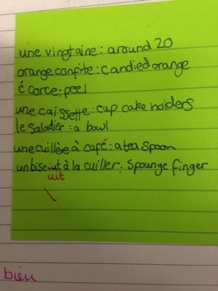 une vingtaine : around 20
orange confite : candied orange
écorce : peel
une caissette : cup cake holders
le saladier : a bowl
une cuillère à café : a tea spoon
un biscuit à la cuiller : Spounge finger
uit
bien